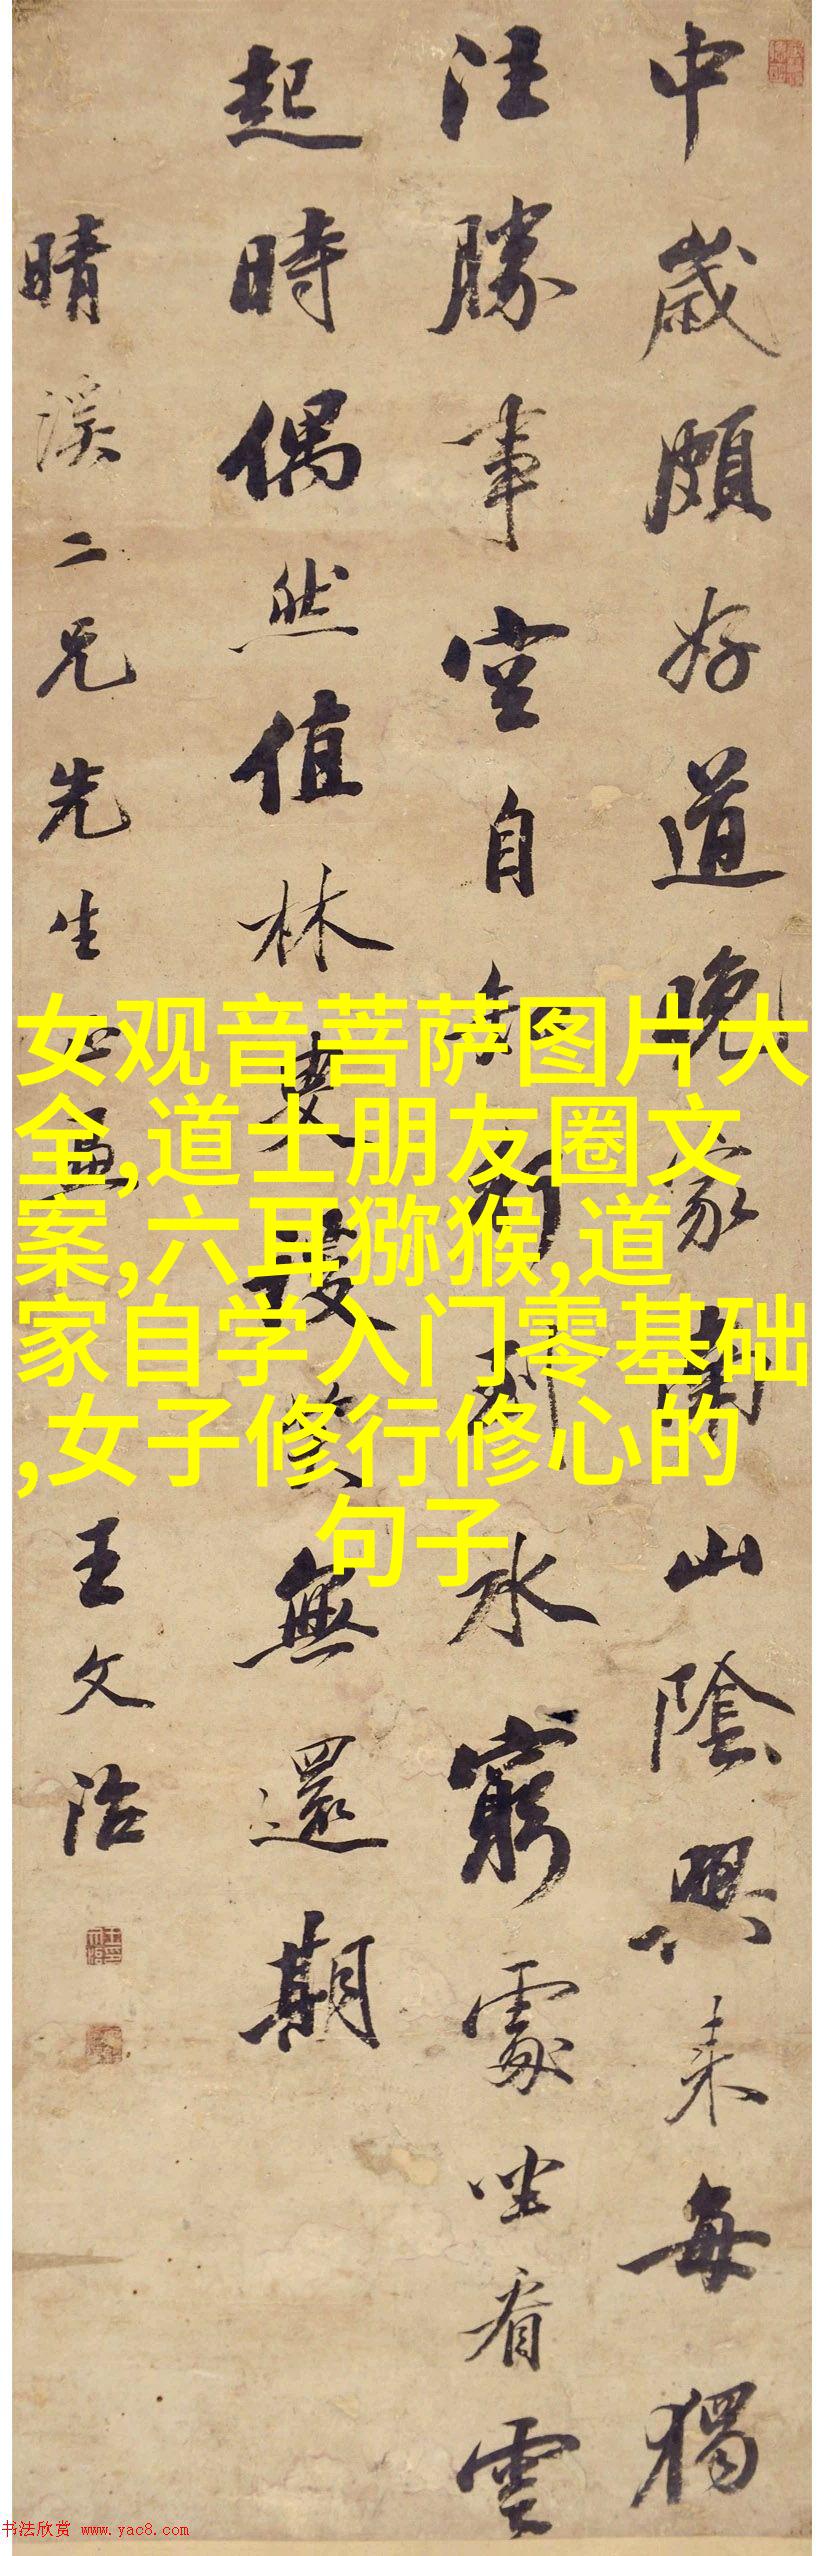 中歲頗好道晚家南山陰興来每獨
往勝事空自知行到水窮處坐看雲
起時偶然值林叟談笑無還期
晴溪二兄先生正 王文治
女观音菩萨图片大
全,道士朋友圈文
案,六耳猕猴,道
家自学入门零基础
,女子修行修心的
句子
书法欣赏 www.yac8.com